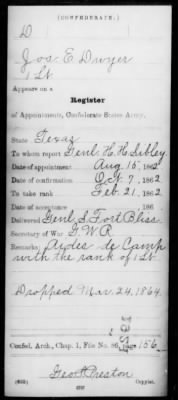 (CONFEDERATE.)
D
Jos E Dwyer
1 Lt
Appears on a
Register
of Appointments, Confederate States Army.
State Texas
To whom report Genl. H. H. Sibley
Date of appointment Aug 15, 1862
Date of confirmation Oct 7, 1862
To take rank Feb 21, 1862
Date of acceptance , 186 .
Delivered Genl S. Fort Bliss
Secretary of War G. W. R
Remarks: Aides de Camp
with the rank of 1 Lt
Dropped Mar. 24. 1864.
Confed. Arch., Chap. 1, File No. 86, page 156
Geo H Preston
(635) Copyist.